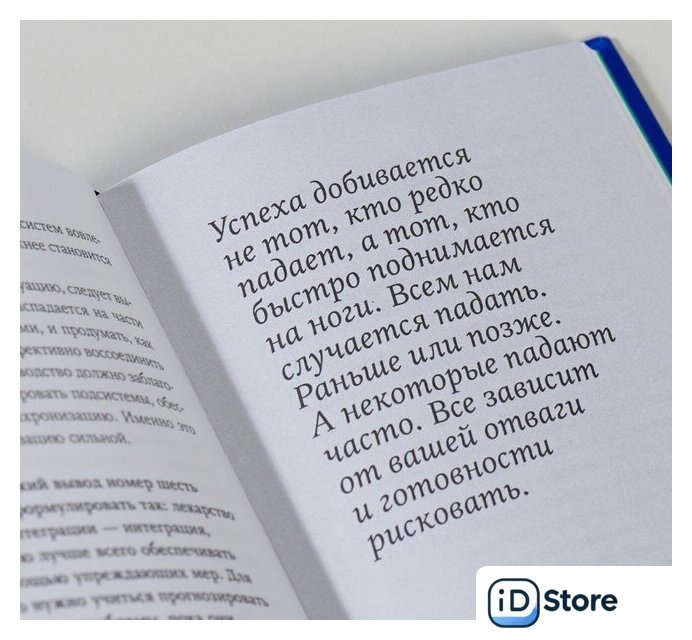 систем вовле-
становится
уацию, следует вы-
спадается на части
ми, и продумать, как
рективно воссоединить
водство должно заблаго-
ровать подсистемы, обес-
хронизацию. Именно это
вацию сильной.
кий вывод номер шесть
формулировать так: лекарство
теграции — интеграция,
лучше всего обеспечивать
ощью упреждающих мер. Для
нужно учиться прогнозировать
Успеха добивается
не тот, кто редко
падает, а тот, кто
быстро поднимается
на ноги. Всем нам
случается падать.
Раньше или позже.
А некоторые падают
часто. Все зависит
от вашей отваги
и готовности
рисковать.
iD Store